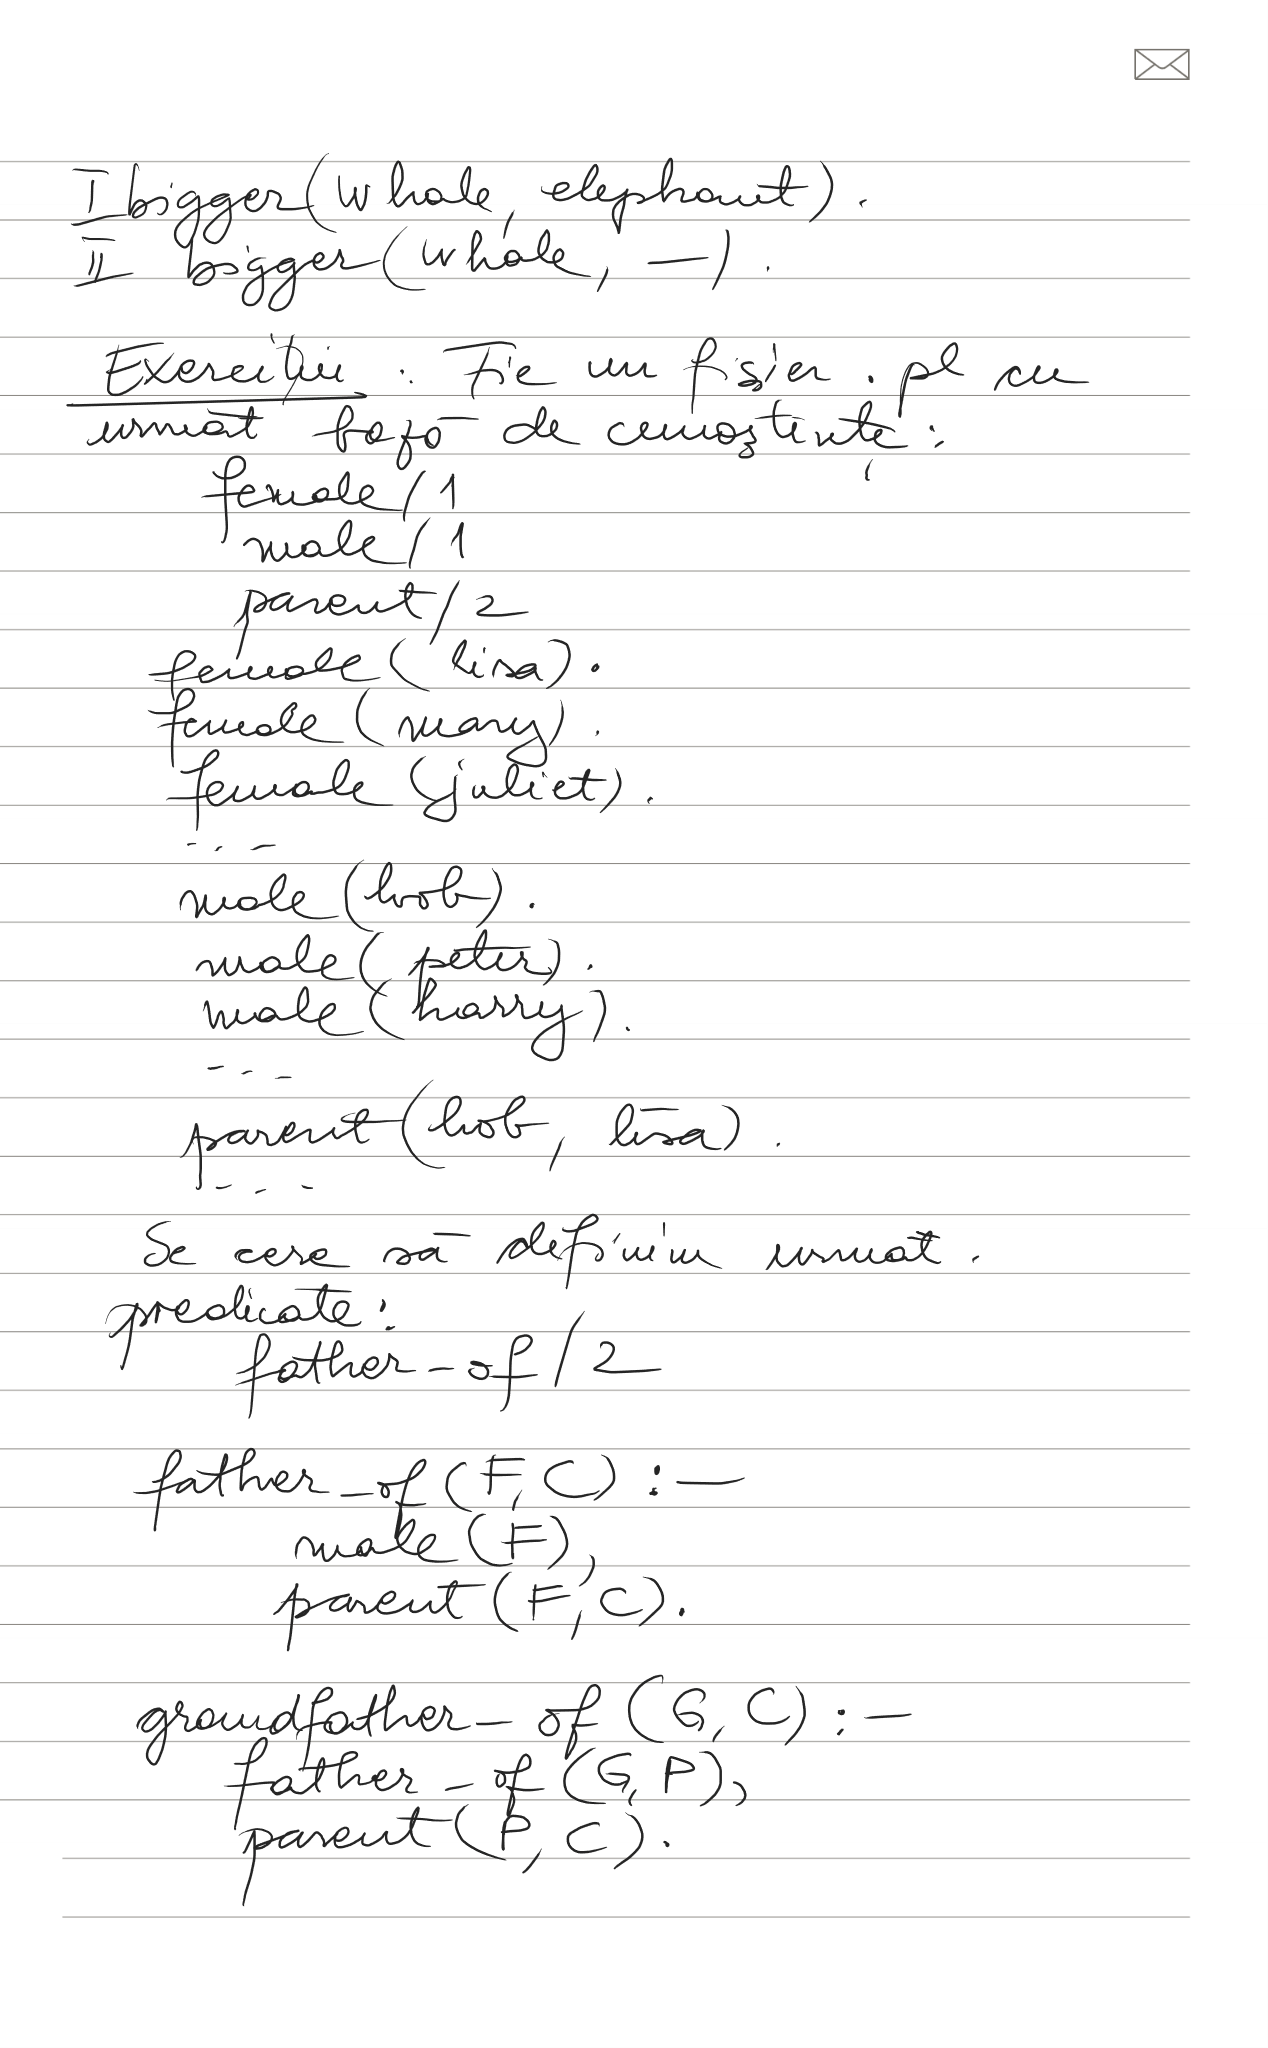 I bigger(whale, elephant).
II bigger(whale, _).
Exercițiu : Fie un fisier .pl cu
urmat bază de cunoștințe:
female/1
male/1
parent/2
female(lisa).
female(mary).
female(juliet).
...
male(bob).
male(peter).
male(harry).
...
parent(bob, lisa).
...
Se cere să definim urmat.
predicate:
father_of/2
father_of(F,C) :-
male(F),
parent(F,C).
grandfather_of(G,C) :-
father_of(G,P),
parent(P,C).